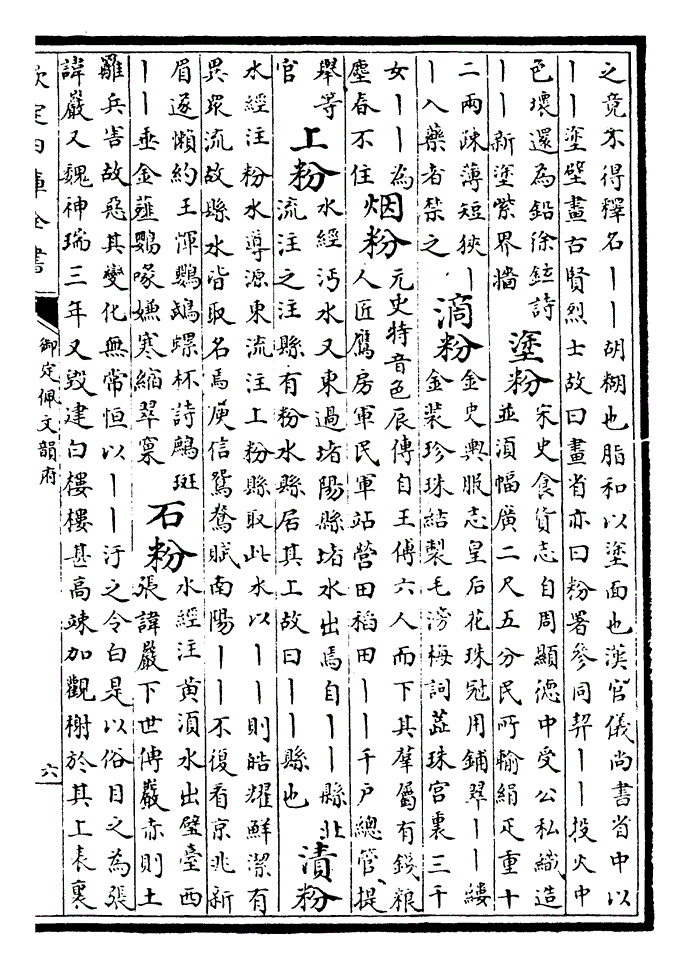 之竟不得釋名丨丨胡糊也脂和以塗面也漢官儀尚書省中以
丨丨塗壁畫古賢烈士故曰畫省亦曰粉署參同契丨丨投火中
色壞還為鉛徐鉉詩
丨丨新塗紫界牆
塗粉
宋史食貨志自周顯德中受公私織造
並須幅廣二尺五分民所輸絹疋重十
二兩疎薄短狹丨
丨入藥者禁之
滴粉
金史輿服志皇后花珠冠用鋪翠丨丨縷
金裝珍珠結製毛滂梅詞蕋珠宮裏三千
女丨丨為
塵春不住
烟粉
元史特音色辰傳自王傅六人而下其羣屬有錢粮
人匠鷹房軍民軍站營田稻田丨丨千户總管提
舉等
官
上粉
水經沔水又東過堵陽縣堵水出焉自丨丨縣北
流注之注縣有粉水縣居其上故曰丨丨縣也
漬粉
水經注粉水導源東流注上粉縣取此水以丨丨則皓耀鮮潔有
異衆流故縣水皆取名焉庾信鴛鴦賦南陽丨丨不復看京兆新
眉遂懶約王惲鸚鵡螺杯詩鷓斑
丨丨垂金薤鸚喙嫌寒縮翠窠
石粉
水經注黄湏水出璧臺西
張諱巖下世傳巖赤則土
離兵害故惡其變化無常恒以丨丨汙之令白是以俗目之為張
諱巖又魏神瑞三年又毀建白樓樓甚高竦加觀榭於其上表裏
欽定四庫全書
御定佩文韻府
六